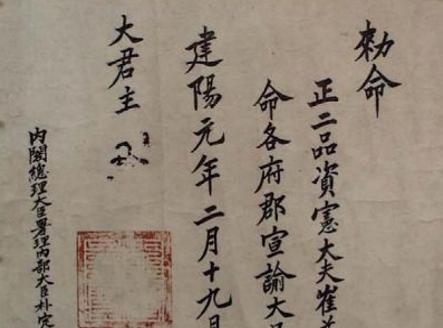 勅命
正二品資憲大夫崔
命各府郡宣諭大
建陽元年二月十九日
大君主
內閣總理大臣署理內部大臣朴定